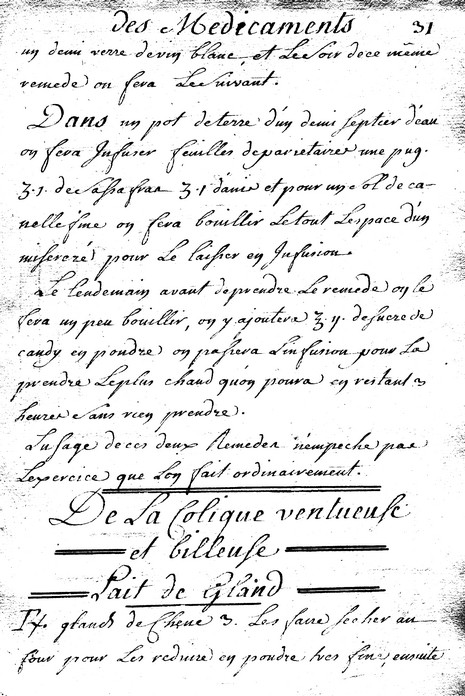 des Medicaments 31
un demi verre de vin blanc, et Le Soir de ce même
remede on fera Le Suivant.
Dans un pot de terre d'un demi septier d'eau
on fera Infuser feuilles de parietaire une pug.
ʒ.1. de Sassafras ʒ.1 d'anis et pour un Sol de ca-
nelle fine on fera bouillir Le tout Lespace d'un
misereré pour Le laisser en Infusion.
Le lendemain avant de prendre Le remede on le
fera un peu bouillir, on y ajoutera ʒ.ij. de sucre de
candy en poudre on passera L'infusion pour La
prendre Le plus chaud qu'on poura en restant 3
heures sans rien prendre.
Lusage de ces deux Remedes n'empeche pas
Lexercice que Lon fait ordinairement.
De La Colique venteuse
et billeuse
Lait de Gland
glands de Chene 3. Les faire secher au
four pour Les reduire en poudre tres fine, ensuite